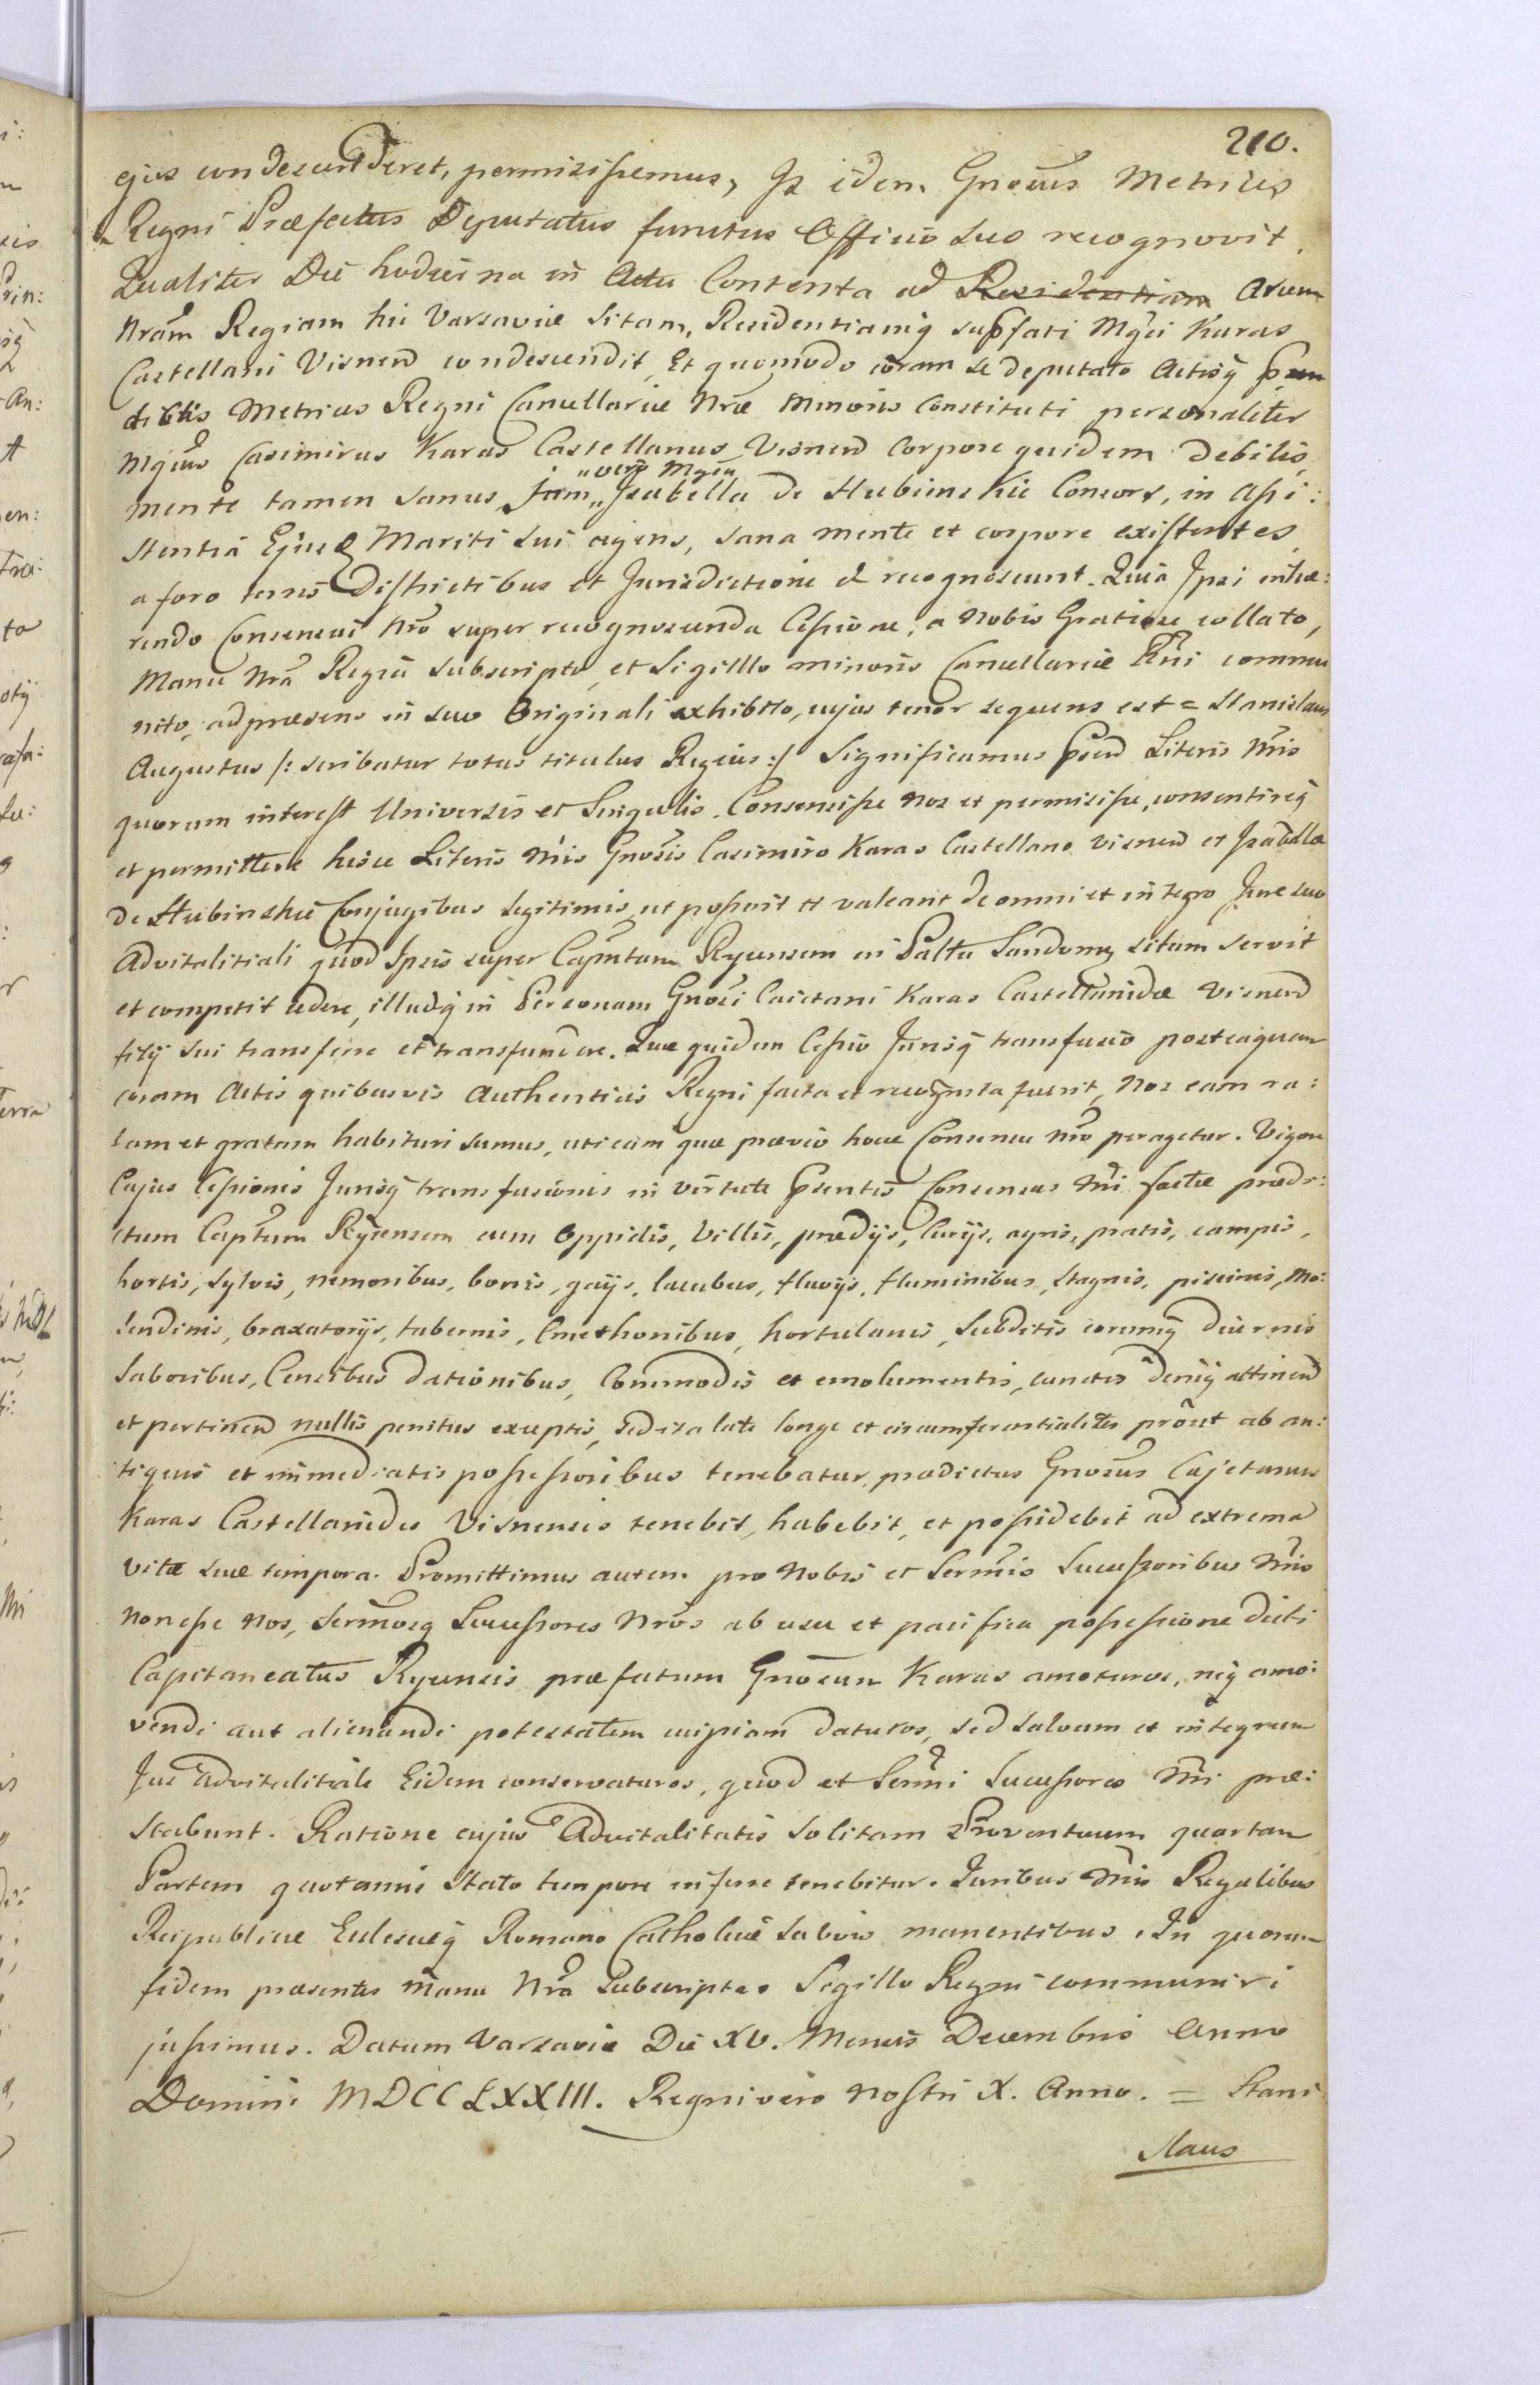 210.
ejus condescenderet, permisissemus, Is idem Gnosus Metrices
Regni Præfectus Deputatus functus Officio suo recognovit.
Qualiter Die hodierna in Actu Contenta ad Residentiam Arcem
Nram Regiam hic Varsaviæ sitam, Residentiamq supfati Mgci Karas
Castellani Visnen condescendit, Et quomodo coram se deputato Actisq
Metrices Regni Cancellariæ Nræ Minoris Constituti personaliter
Mgcus Casimirus Karas Castellanus Visnen Corpore quidem debilis,
mente tamen sanus, jam „vero Mgca„ Isabella de Stubienskie Consors, in Assi:
stentia Ejusd Mariti sui agens, sana mente et corpore existentes,
a foro terris Districtibus et Jurisdictione d recognoscunt. Quia Ipsi inhæ:
rendo Consensui Nro super recognoscenda Cessione, a Nobis Gratiose collato,
Manu Nra Regia subscripto, et Sigilllo minoris Cancellariæ Rni commu
nito, ad præsens in suo Originali exhibito, cujus tenor sequens est = Stanislaus
Augustus /: scribatur totus titulus Regius :/ Significamus Psen Literis Nris
quorum interest Universis et Singulis. Consensisse Nos et permisisse, consentireq
et permittere hisce Literis Nris Gnosis Casimiro Karas Castellano Visnen et Isabellæ
de Stubinskie Conjugibus legitimis, ut possint et valeant de omni et integro Jure suo
Advitalitiali quod Ipsis super Capntum Ryensem in Paltu Sandomz situm servit
et competit cedere, illudq in Personam Gnosi Caietani Karas Castellanidæ Visnen
filij sui transferre et transfundere. Quæ quidem Cessio Jurisq transfusio posteaquam
coram Actis quibusvis Authenticis Regni facta et recognita fuerit, Nos eam ra:
tam et gratam habituri sumus, uti eam quæ prævio hocce Consensu Nro peragetur. Vigore
Cujus Cessionis Jurisq transfusionis in virtute Psentis Consensus Nri factæ prædi:
ctum Captum Ryensem cum Oppidis, Villis, prædijs, Curijs, agris, pratis, campis,
hortis, sylvis, nemoribus, borris, gaijs, lacubus, fluvijs, fluminibus, stagnis, piscinis, Mo:
lendinis, braxatorijs, tabernis, Cmethonibus, hortulanis, Subditis eorumq diurnis
laboribus, Censibus dationibus, Commodis et emolumentis, cunctis deniq attinen
et pertinen nullis penitus exceptis, sed ita late longe et circumferentialiter prout ab an:
tiquis et immediatis possessoribus tenebatur, prædictus Gnosus Cajetanus
Karas Castellanides Visnensis tenebit, habebit, et possidebit ad extrema
vitæ suæ tempora. Promittimus autem pro Nobis et Sermis Successoribus Nris
non esse Nos, Sermosq Successores Nros ab usu et pacifica possessione dicti
Capitaneatus Ryensis præfatum Gnosum Karas amoturos, neq amo:
vendi aut alienandi potestatem cuipiam daturos, sed salvum et integrum
Jus advitalitiale Eidem conservaturos, quod et Sermi Successores Nri præ:
stabunt. Ratione cujus Advitalitatis solitam Proventuum quartam
Partem quotannis stato tempore inferre tenebitur. Juribus Nris Regalibus
Reipublicæ Eclesiæq Romano Catholicæ salvis manentibus. In quorum
fidem præsentes manu Nra Subscriptas Sigillo Regni communiri
jussimus. Datum Varsaviæ Die XV. Mensis Decembris Anno
Domini MDCCLXXIII. Regni vero Nostri X. Anno. = Stani
slaus